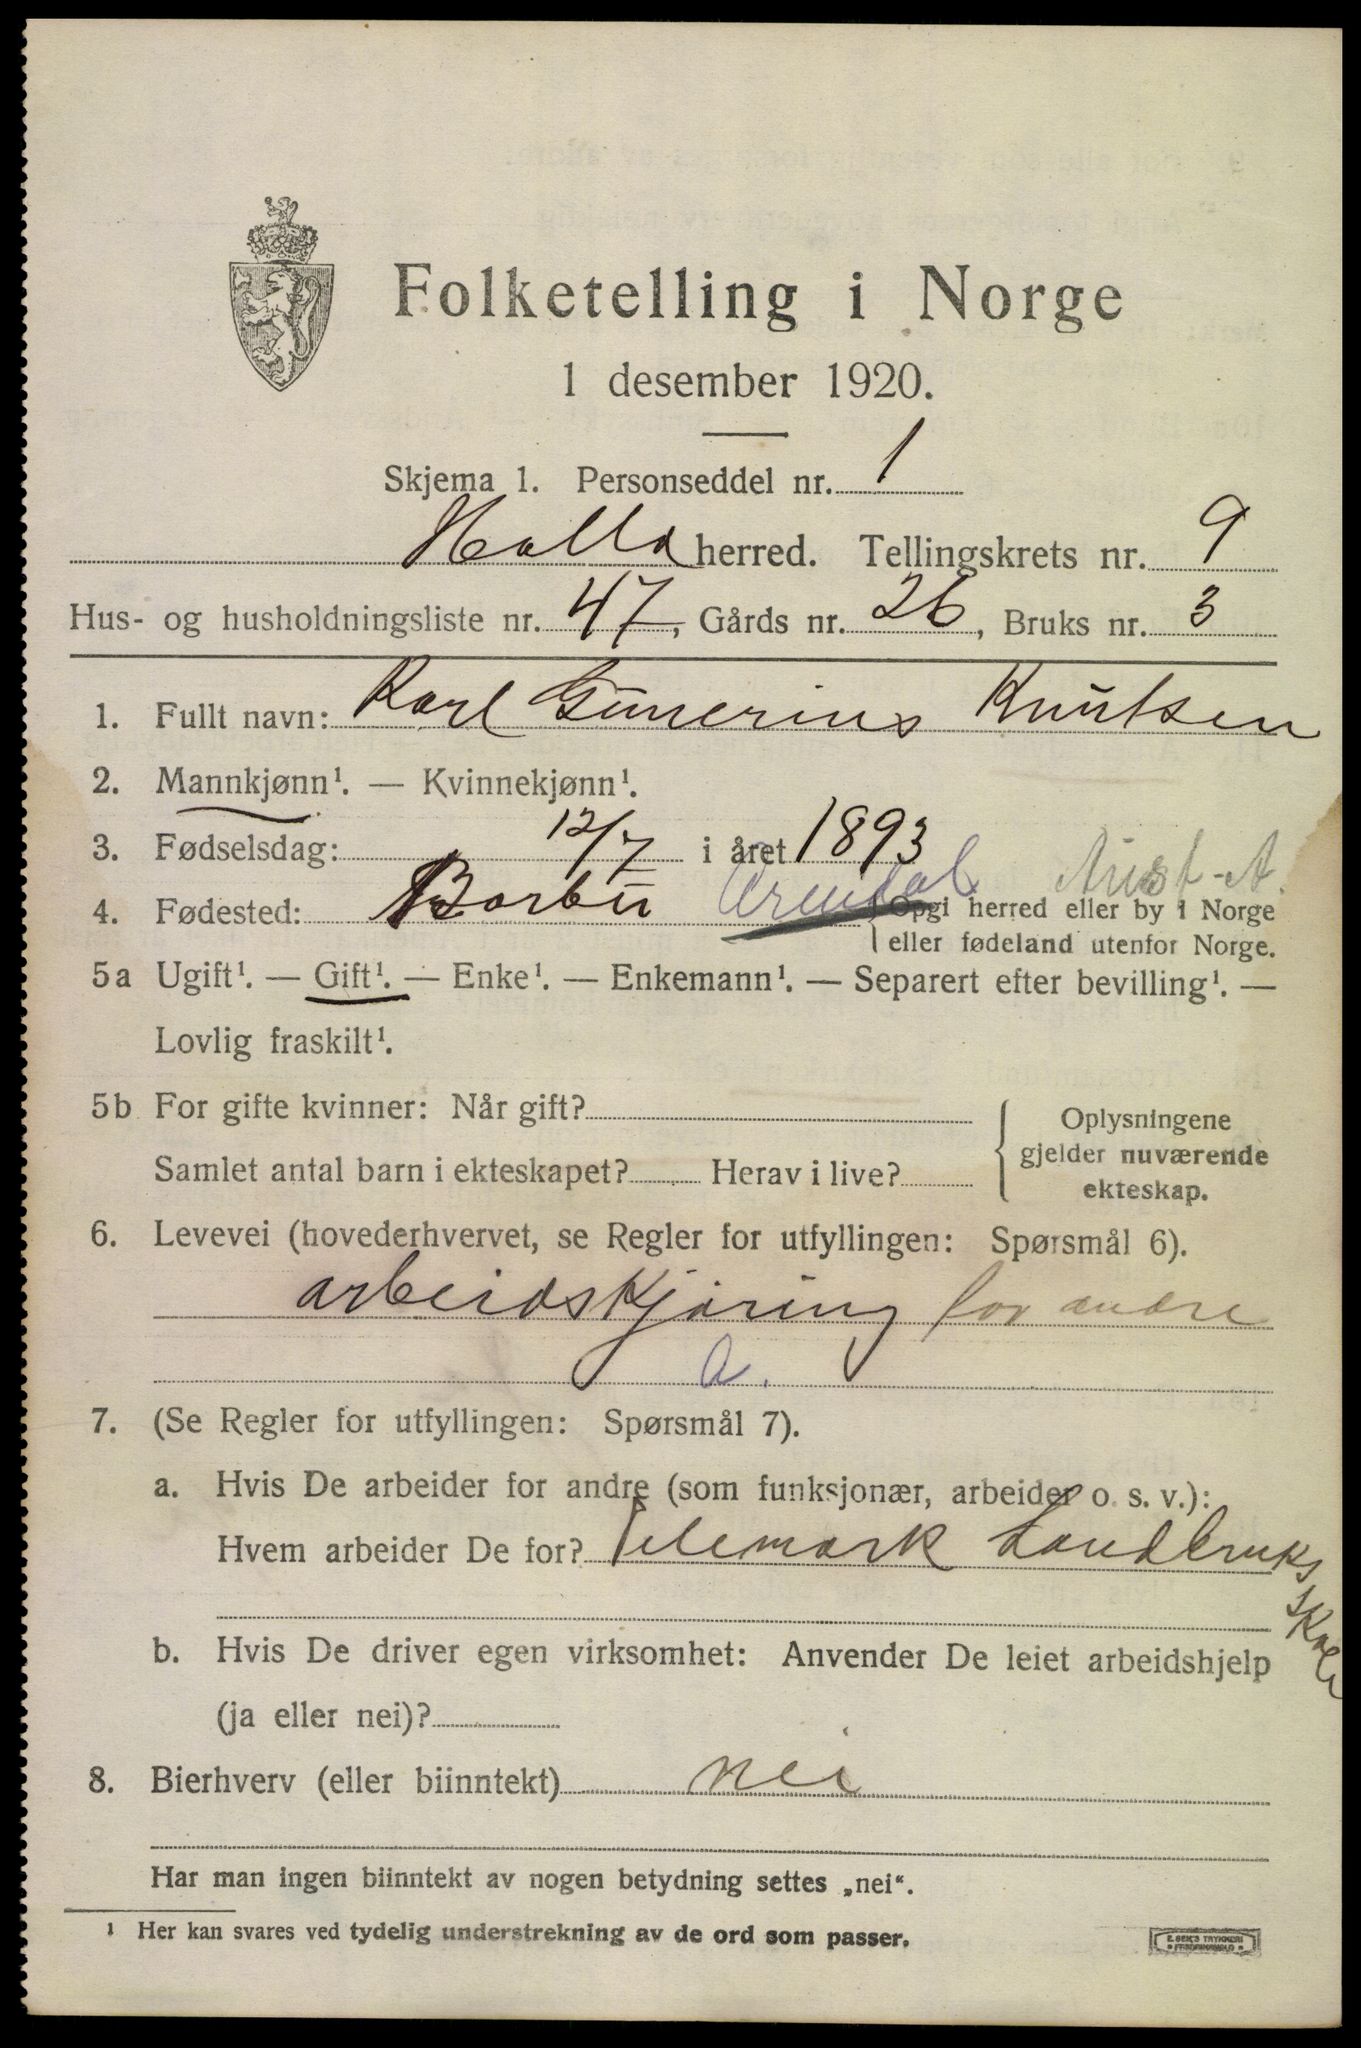 Folketelling i Norge
1 desember 1920.
Skjema 1. Personseddel nr. 1
Holla herred. Tellingskrets nr. 9
Hus- og husholdningsliste nr. 47, Gårds nr. 26, Bruks nr. 3
1. Fullt navn: Karl Gunerius Knutsen
2. Mannkjønn¹. — Kvinnekjønn¹.
3. Fødselsdag: 12/7 i året 1893
4. Fødested: Barbu Arendal Aust-A.
Opgi herred eller by i Norge
eller fødeland utenfor Norge.
5a Ugift¹. — Gift¹. — Enke¹. — Enkemann¹. — Separert efter bevilling¹. —
Lovlig fraskilt¹.
5b For gifte kvinner: Når gift?
Samlet antal barn i ekteskapet? Herav i live?
Oplysningene
gjelder nuværende
ekteskap.
6. Levevei (hovederhvervet, se Regler for utfyllingen: Spørsmål 6).
arbeidskjøring for andre
a.
7. (Se Regler for utfyllingen: Spørsmål 7).
a. Hvis De arbeider for andre (som funksjonær, arbeider o. s. v.):
Hvem arbeider De for? Telemark Landbruks
skole
b. Hvis De driver egen virksomhet: Anvender De leiet arbeidshjelp
(ja eller nei)?
8. Bierhverv (eller biinntekt) nei
Har man ingen biinntekt av nogen betydning settes „nei“.
¹ Her kan svares ved tydelig understrekning av de ord som passer.